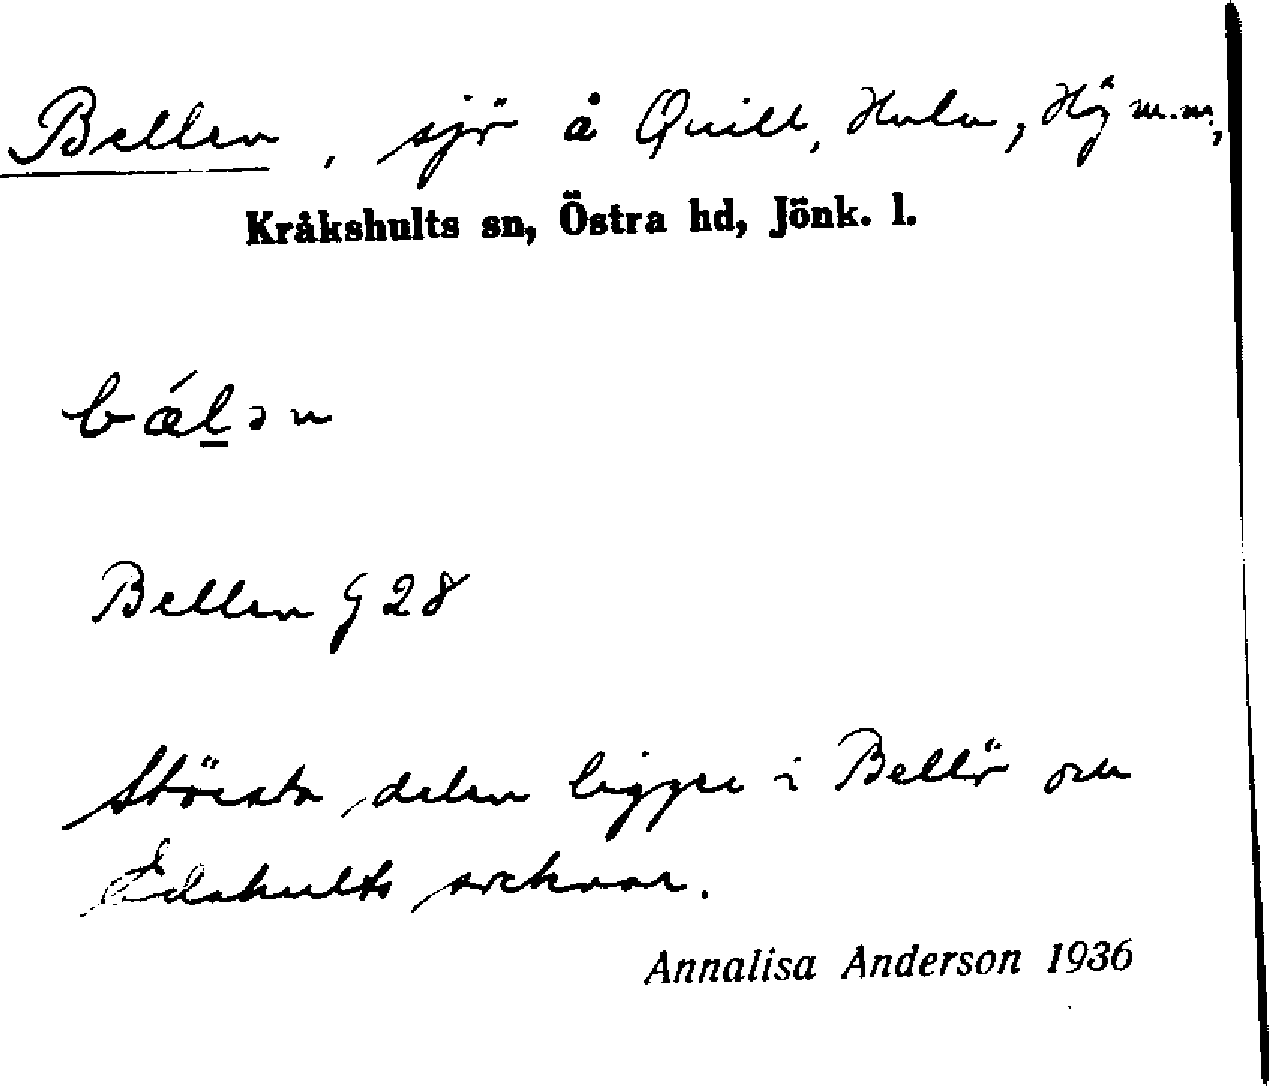 Bellen, sjö å Quill, Hula, Höj m.m.,
Kråkshults sn, Östra hd, Jönk. l.
bǽl̲ən
Bellen G 28
Största delen ligger i Bellö och
Edshults socknar.
Annalisa Anderson 1936